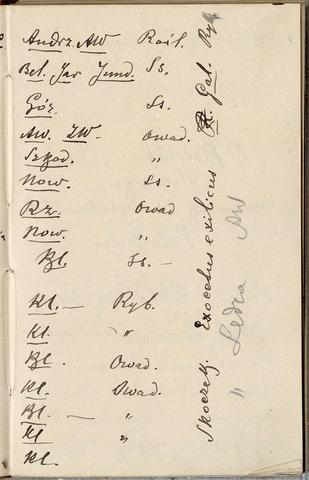 Andrz. AW Rośl.
Bel. Jar Jund. Ss.
Gór. Ss.
AW. ZW. Owad.
Szkod. "
Now. Ss.
Rz. Owad
Now. "
Bl. Ss. —
Kl. — Ryb.
Kl. "
Bl. Owad.
Kl. Owad.
Bl. — "
Kl "
Kl.
Skoczek. Exocetus exilicus Gal. Ryb
" Ledra AW